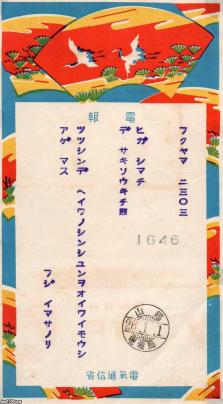 電報
フクヤマ 二三〇三
ヒガ シマチ
デ サキソウキチ殿
ツツシンデ ヘイワノシンシユンヲオイワイモウシ
アゲ マス
フジ イマサノリ
1646
26.1.1
電氣通信省